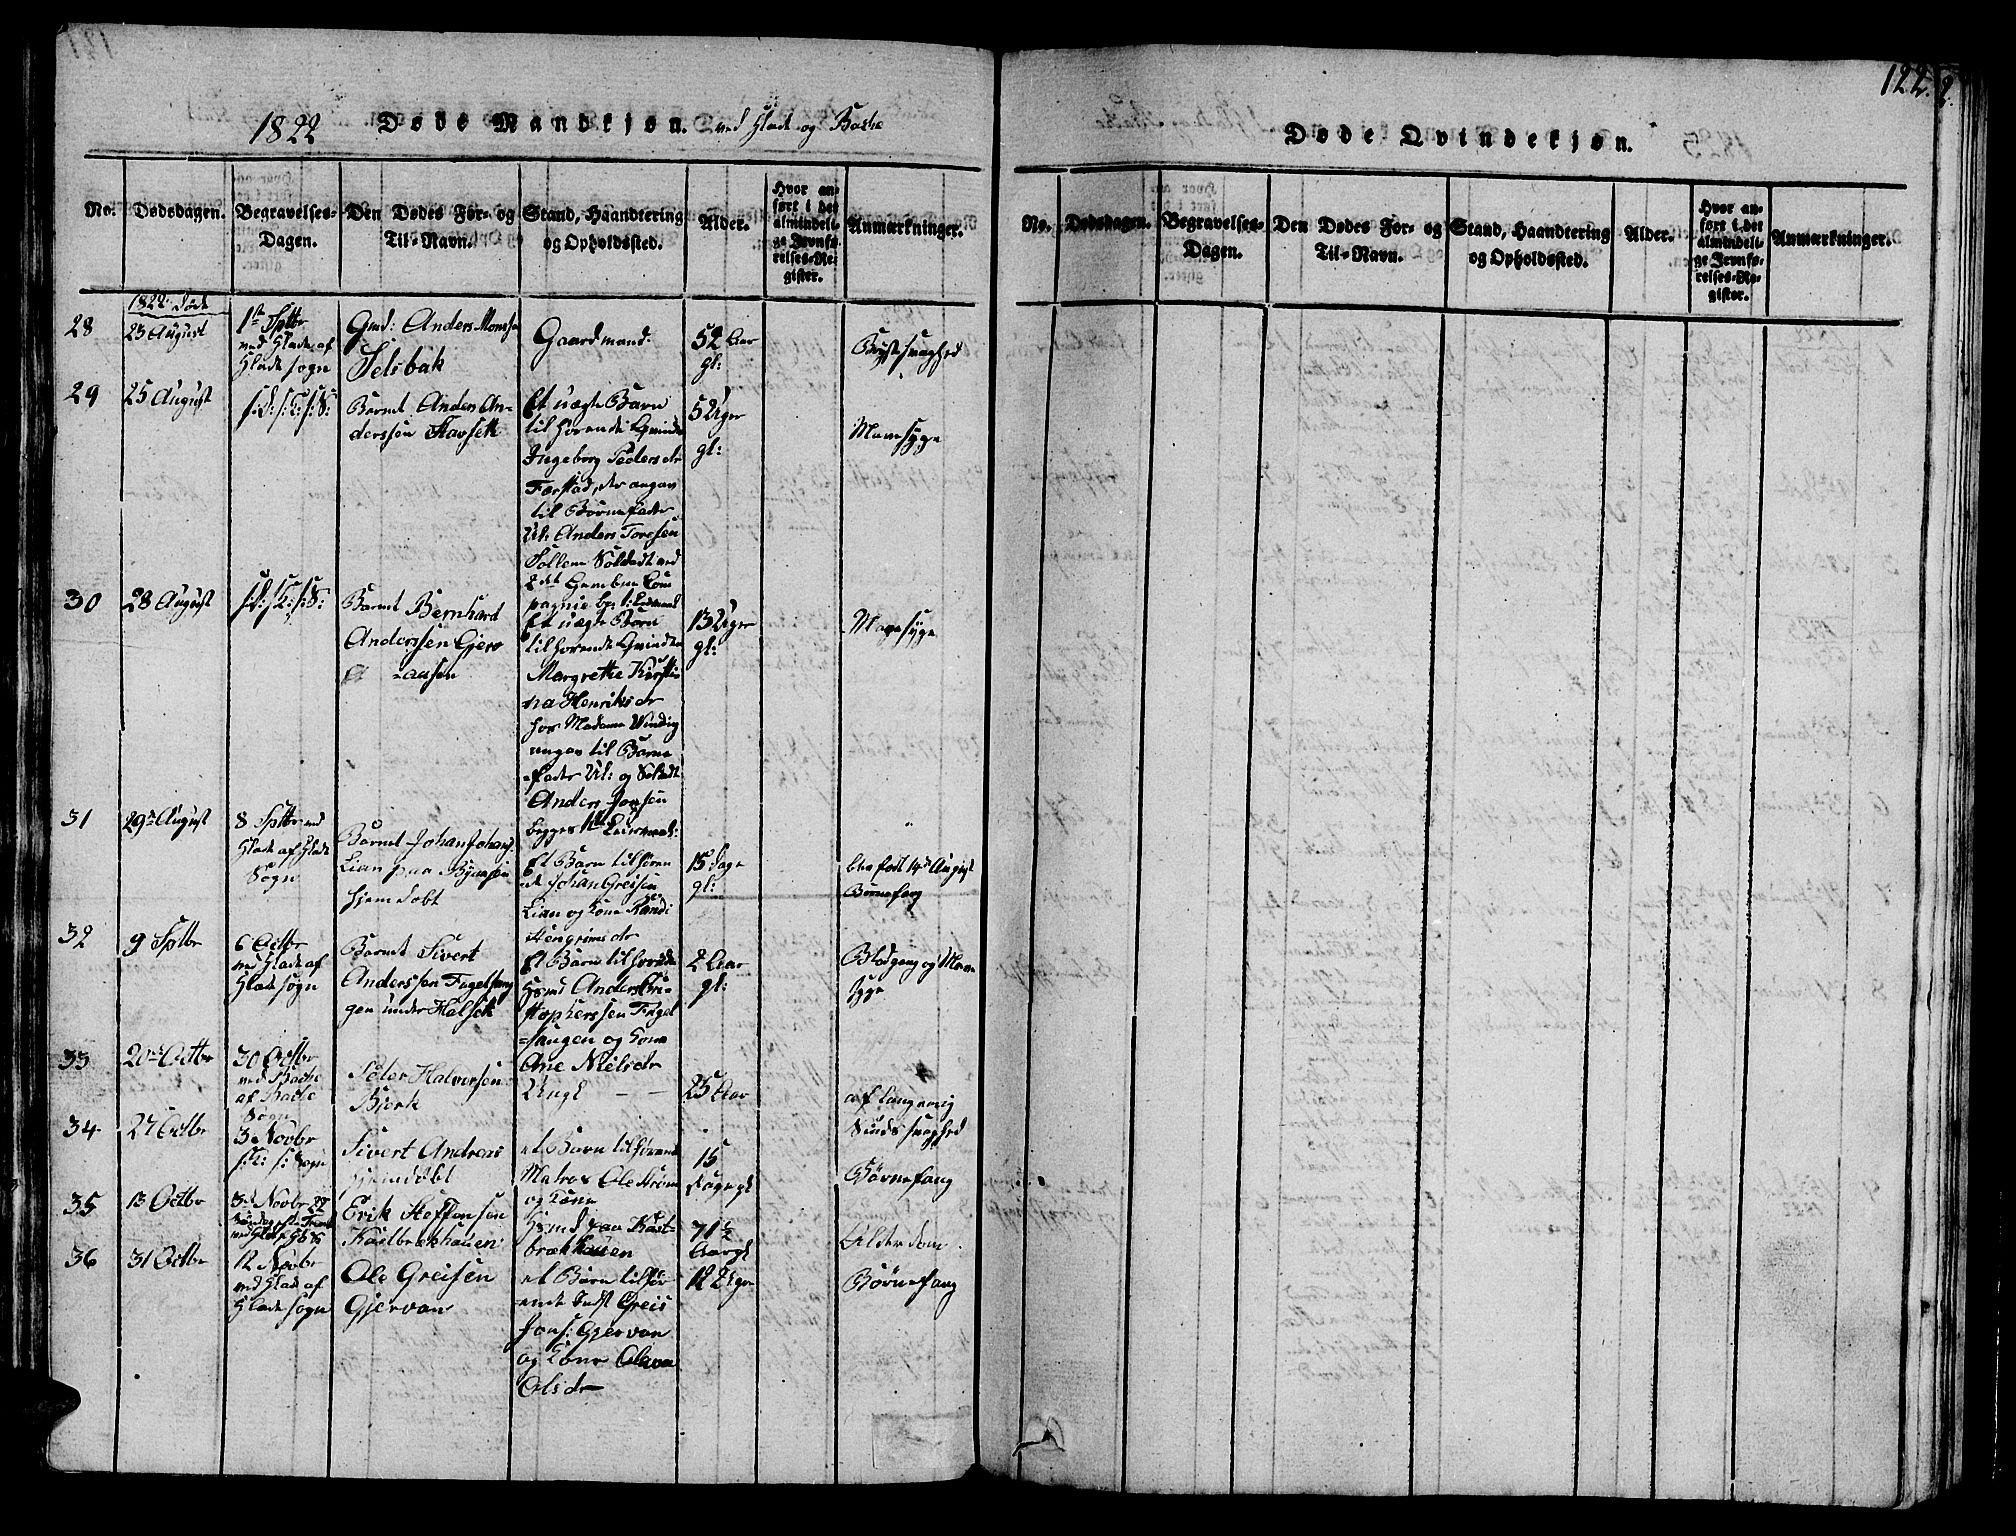 122.
1822 Døde Mandkjøn. ved Hlade og Bakke
No.
Dødsdagen.
Begravelses-
Dagen.
Den Dødes For- og
Til-Navn.
Stand, Haandtering
og Opholdssted.
Alder.
Hvor an-
ført i det
almindeli-
ge Jevnfø-
relses-Re-
gister.
Anmærkninger.
1822 Døde
28
23 August
1ste Sptbr
ved Hlade af
Hlade sogn
Gmd: Anders Monsen
Selsbak
Gaardmand:
52 Aar
gl:
Brystsvaghed
29
25 August
s: D: s: K: s: S:
Barnet Anders An-
derssøn Havsek
Et uægte Barn
tilhørende Qvinden
Ingeborg Pedersdr
Færstad, der angav
til Barnefader
Uk: Anders Toresen
Sollem Soldadt ved
2det
pagnie
5 Uger
gl:
Mavesyge
30
28 August
s: D: s: K: s: S:
Barnet Bernhard
Anderssen Gjerv
aasen
Et uægte Barn
tilhørende Qvinden
Margrethe Kirsti-
na Henriksdr
hos Madame Winding
angav til Barne
-fader Uk: og Soldadt
Anders Joensen
begges 1ste Leiermaal:
13 Uger
gl:
Mavesyge
31
29de August
8 Sptbr ved
Hlade af Hlade
Sogn
Barnet Johan Johans:
Lian paa Byaasen
hjemdøbt
Et Barn tilhøren
de Johan Greisen
Lian og Kone Randi
Stengrimsdr
15 Dage
gl:
blev fød 14de August
Børnefang
32
9 Sptbr
6 Octbr
ved Hlade af
Hlade sogn
Barnet Sivert
Anderssen Fugelsang
gen under Halsek
Et Barn tilhørende
Hsmd Anders Cri-
stopherssen Fugel
=sangen og Kone
Ane Nielsdr
2 Aar
gl:
Blodgang og Mave
syge
33
20de Octbr
30 Octbr
ved Bakke
af Bakke
Sogn
Peter Halvorsen
Bjørk
Ungk - -
25 Aar
af langvarig
Sindssvaghed
34
27 Octbr
3de Novbr
s: K: s: Sogn
Sivert Andreas
hjemdøbt
et Barn tilhørende
Matros Ole Strøm
og Kone
15
Dage gl
Børnefang
35
13 Octbr
3de Novbr 22
Erik Steffensen
Kastbrækhauen
Hsmd paa Kast-
brækhauen
71½
Aar gl
Alderdom
36
31 Octbr
12 Novbr
ved Hlade af
Hlade sogn
Ole Greisen
Gjervan
et Barn tilhør
-ende Indst Greis
Jons: Gjervan
og Kone Olava
Olsdr
12 Uger
Børnefang
Døde Qvindekjøn.
No.
Dødsdagen.
Begravelses-
Dagen.
Den Dødes For- og
Til-Navn.
Stand, Haandtering
og Opholdssted.
Alder.
Hvor an-
ført i det
almindeli-
ge Jevnfø-
relses-Re-
gister.
Anmærkninger.